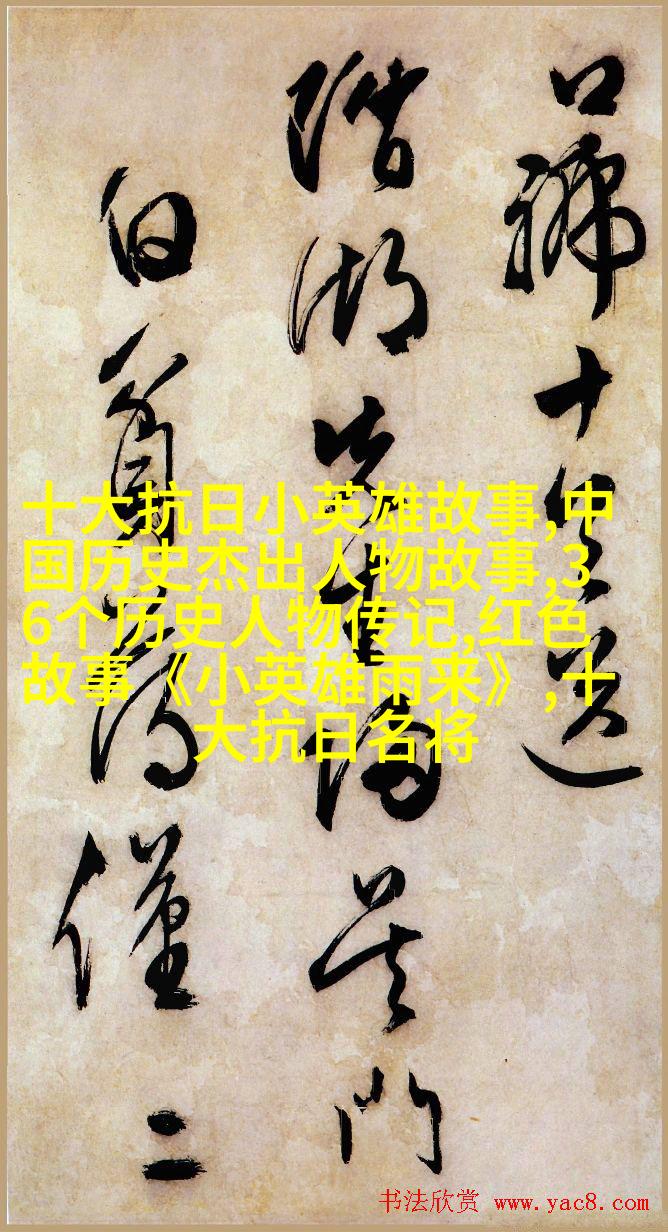 口號十
湖先生歸吳門
白首得僅二
十大抗日小英雄故事,中
国历史杰出人物故事,3
6个历史人物传记,红色
故事《小英雄雨来》,十
大抗日名将
书法欣赏 www.yac8.com